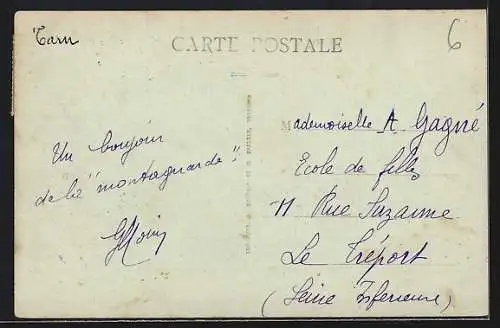 Tarn
CARTE POSTALE
6
Un boujoir
de la "montagnarde".
Mademoiselle A. Gagné
Ecole de filles
11 Rue Suzanne
Le Tréport
(Seine Inférieure)